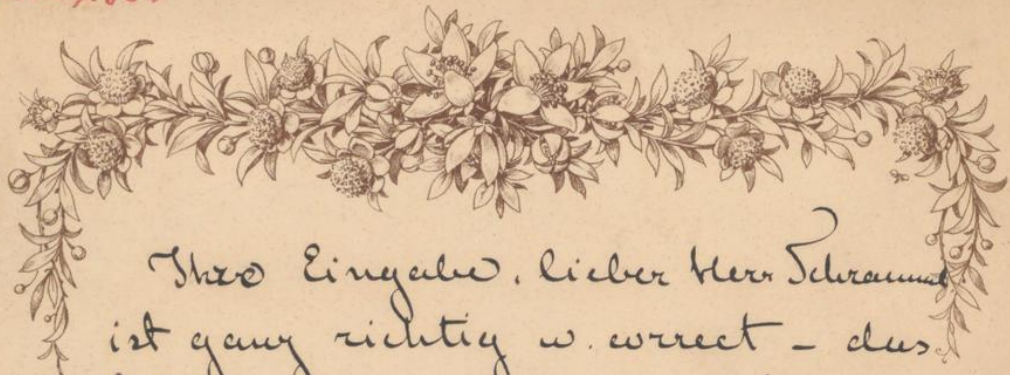 Ihre Eingabe, lieber Herr Schramml
ist ganz richtig u. correct – das